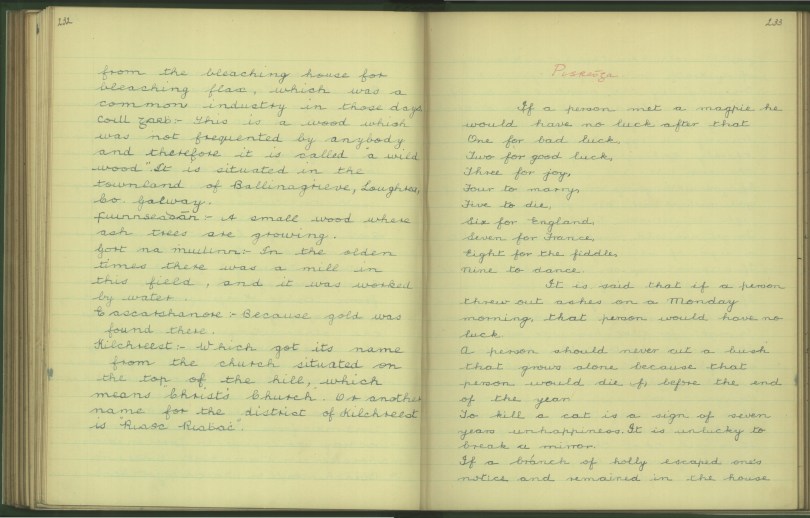 232
from the bleaching house for
bleaching flax, which was a
common industry in those days
Coill Garb:- This is a wood which
was not frequented by anybody
and therefore it is called "a wild
wood". It is situated in the
townland of Ballinagrieve, Loughrea,
Co. Galway.
Fuinnseasán:- A small wood where
ash trees are growing.
Gort na muilinn:- In the olden
times there was a mill in
this field, and it was worked
by water.
Because gold was
found there.
Kilchreest:- Which got its name
from the church situated on
the top of the hill, which
means Christ's Church. Or another
name for the district of Kilchreest
is "Riabac".
233
If a person met a magpie he
would have no luck after that
One for bad luck,
Two for good luck,
Three for joy,
Four to marry,
Five to die,
Six for England,
Seven for France,
Eight for the fiddle,
Nine to dance.
It is said that if a person
threw out ashes on a Monday
morning, that person would have no
luck
A person should never cut a bush
that grows alone because that
person would die before the end
of the year
To kill a cat is a sign of seven
years unhappiness. It is unlucky to
break a mirror
If a branch of holly escaped one's
notice and remained in the house